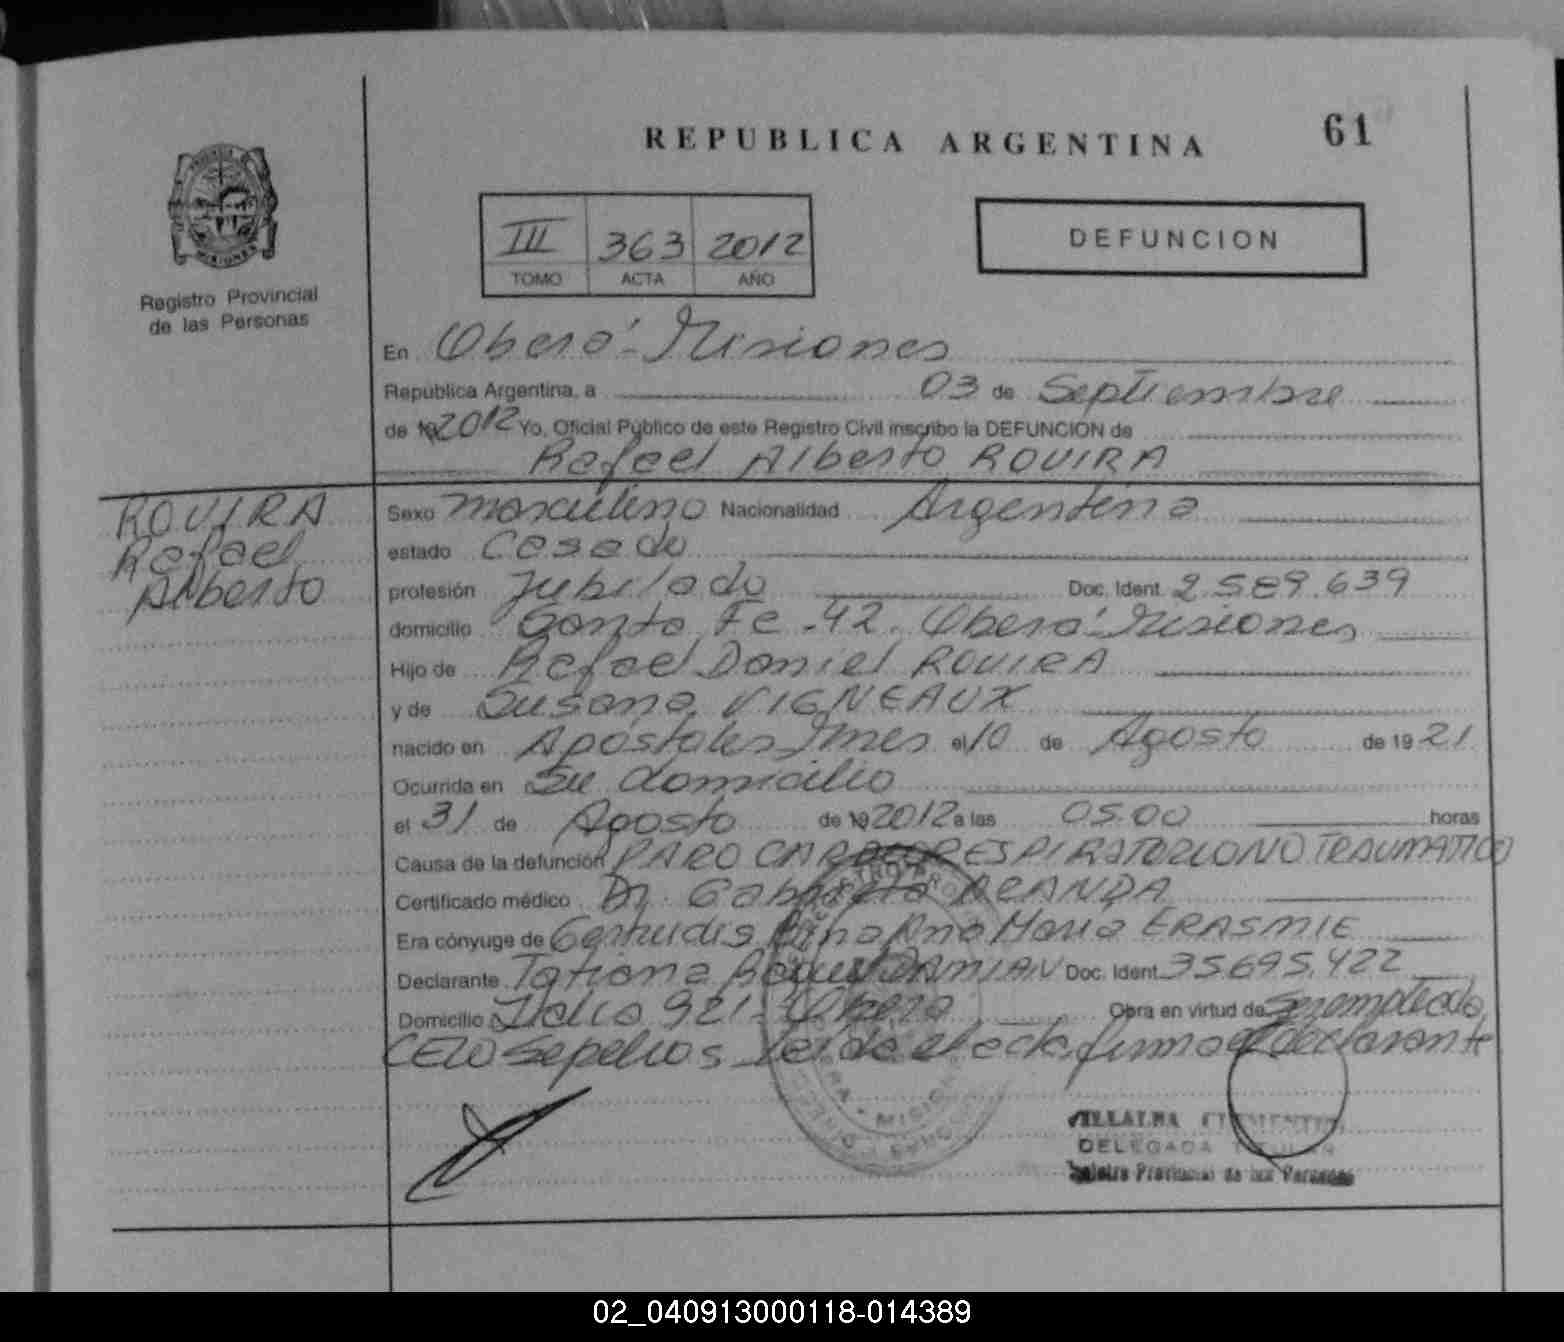 REPUBLICA ARGENTINA
61
MISIONES
Registro Provincial
de las Personas
III 363 2012
TOMO ACTA AÑO
DEFUNCION
En Oberá - Misiones
República Argentina, a 03 de Septiembre
de 19 2012 Yo, Oficial Público de este Registro Civil inscribo la DEFUNCION de
Rafael Alberto ROVIRA
ROVIRA
Rafael
Alberto
Sexo masculino Nacionalidad Argentina
estado Casado
profesión Jubilado Doc. Ident. 2.589.639
domicilio Santa Fe - 42. Oberá - Misiones
Hijo de Rafael Daniel ROVIRA
y de Susana VIGNEAUX
nacido en Apóstoles Mnes el 10 de Agosto de 19 21
Ocurrida en Su domicilio
el 31 de Agosto de 19 2012 a las 05.00 horas
Causa de la defunción PARO CARDIORESPIRATORIO NO TRAUMATICO
Certificado médico Dr. ARANDA
Era cónyuge de Gertrudis Ana Maria ERASMIE
Declarante Tatiana Raquel DAMIAN Doc. Ident. 35.695.422
Domicilio Italia 921 - Oberá Obra en virtud de Ser empleada
CELO Sepelios Leida el acta, firma el declarante
VILLALBA
DELEGADA TITULAR
Registro Provincial de las Personas
02_040913000118-014389